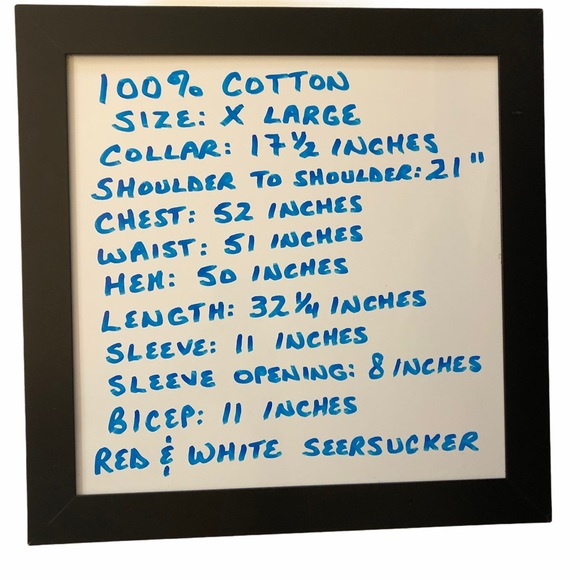 100% COTTON
SIZE: X LARGE
COLLAR: 17 1/2 INCHES
SHOULDER TO SHOULDER: 21"
CHEST: 52 INCHES
WAIST: 51 INCHES
HEM: 50 INCHES
LENGTH: 32 1/4 INCHES
SLEEVE: 11 INCHES
SLEEVE OPENING: 8 INCHES
BICEP: 11 INCHES
RED & WHITE SEERSUCKER